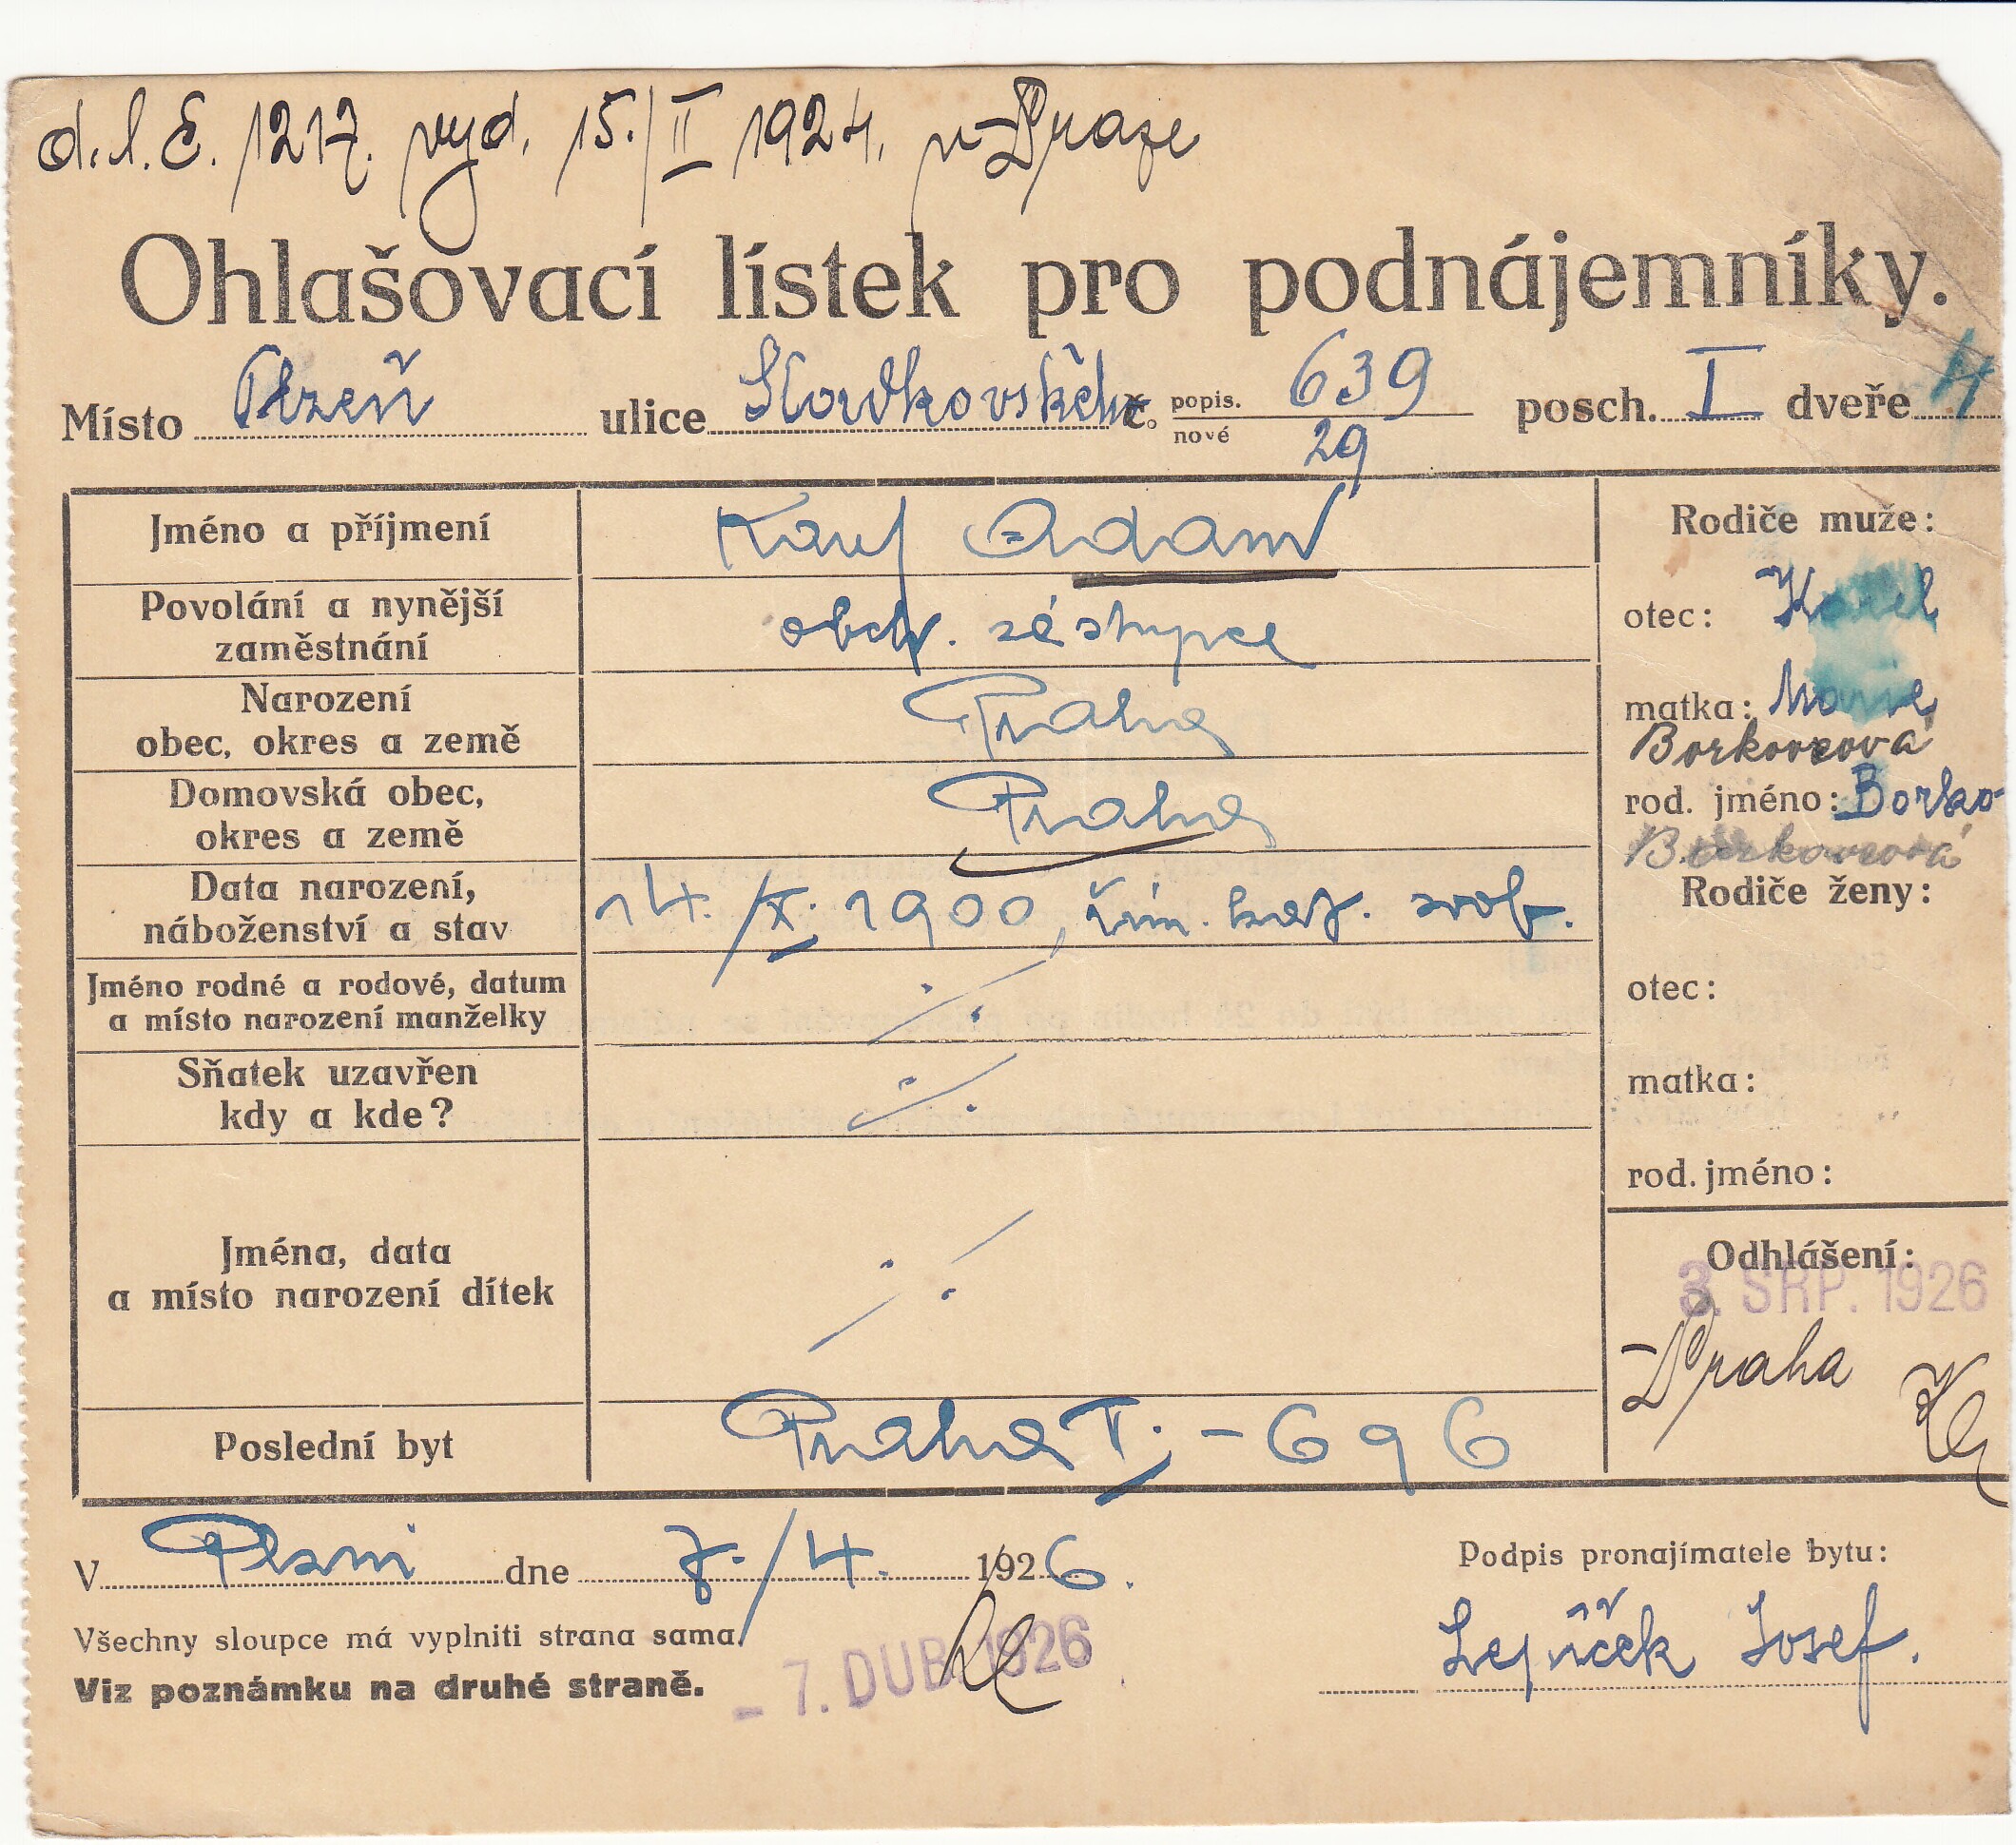 d.l. E. 1217. vyd. 15./II 1924. v Praze
Ohlašovací lístek pro podnájemníky.
Místo Plzeň ulice č. popis. 639 posch. I dveře 4
nové 29
Jméno a příjmení Karel Adam
Povolání a nynější zaměstnání obch. zástupce
Narození obec, okres a země Praha
Domovská obec, okres a země Praha
Data narození, náboženství a stav 14./X. 1900, řím. kat. svob.
Jméno rodné a rodové, datum a místo narození manželky ·/.
Sňatek uzavřen kdy a kde? ·/.
Jména, data a místo narození dítek ·/.
Poslední byt Praha - 696
Rodiče muže:
otec: Karel
matka: Marie
Borkovcová
rod. jméno: Borko-
Borkovcová
Rodiče ženy:
otec:
matka:
rod. jméno:
Odhlášení:
3. SRP. 1926
Praha
V Plzni dne 7./4. 1926.
Všechny sloupce má vyplniti strana sama.
Viz poznámku na druhé straně.
- 7. DUB. 1926
Podpis pronajímatele bytu:
Josef.